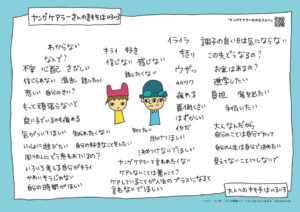 ヤングケアラーさんのきもちはいろいろ
「ヤングケアラーのみなさんへ」
わからない
なんで?
不安 心配 さびしい
信じられない 消えたい 話したい
悲しい 自分のせい?
もって頑張らないと
良い子でいるのも疲れる
気がついてほしい
いつもに
周りの人にどう思われているの?
いろいろ考える自分がキライ
かわいそうじゃない
自分の時間がほしい
キライ 好き
信じない 感じない
話したくない
知られたくない
自分の好きなことをしたい
知りたい
助けてほしい
決めつけないでほしい
ヤングケアラーと言われたくない
ケアしないことは悪いこと?
ケアしていることが人生のプラスになるって
言わないでほしい
イライラ
怒り
ウザッ
ムカつく
疲れる
面倒くさい
はずかしい
イヤだ
調子の良い日は気にならない
この先どうなるの?
お金はあるの?
進学したい
負担 家を出たい
手伝いたい
大人なんだから
自分のことは自分でやって
自分の人生は自分で決めたい
見えてないことにしないで
大人へのきもちはいろいろ